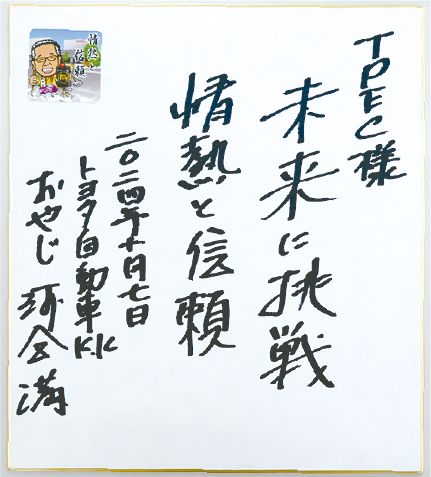 TDEC様
未来に挑戦
情熱と信頼
二〇二四年十月七日
トヨタ自動車K.K
おやじ 河合満
情熱と
信頼